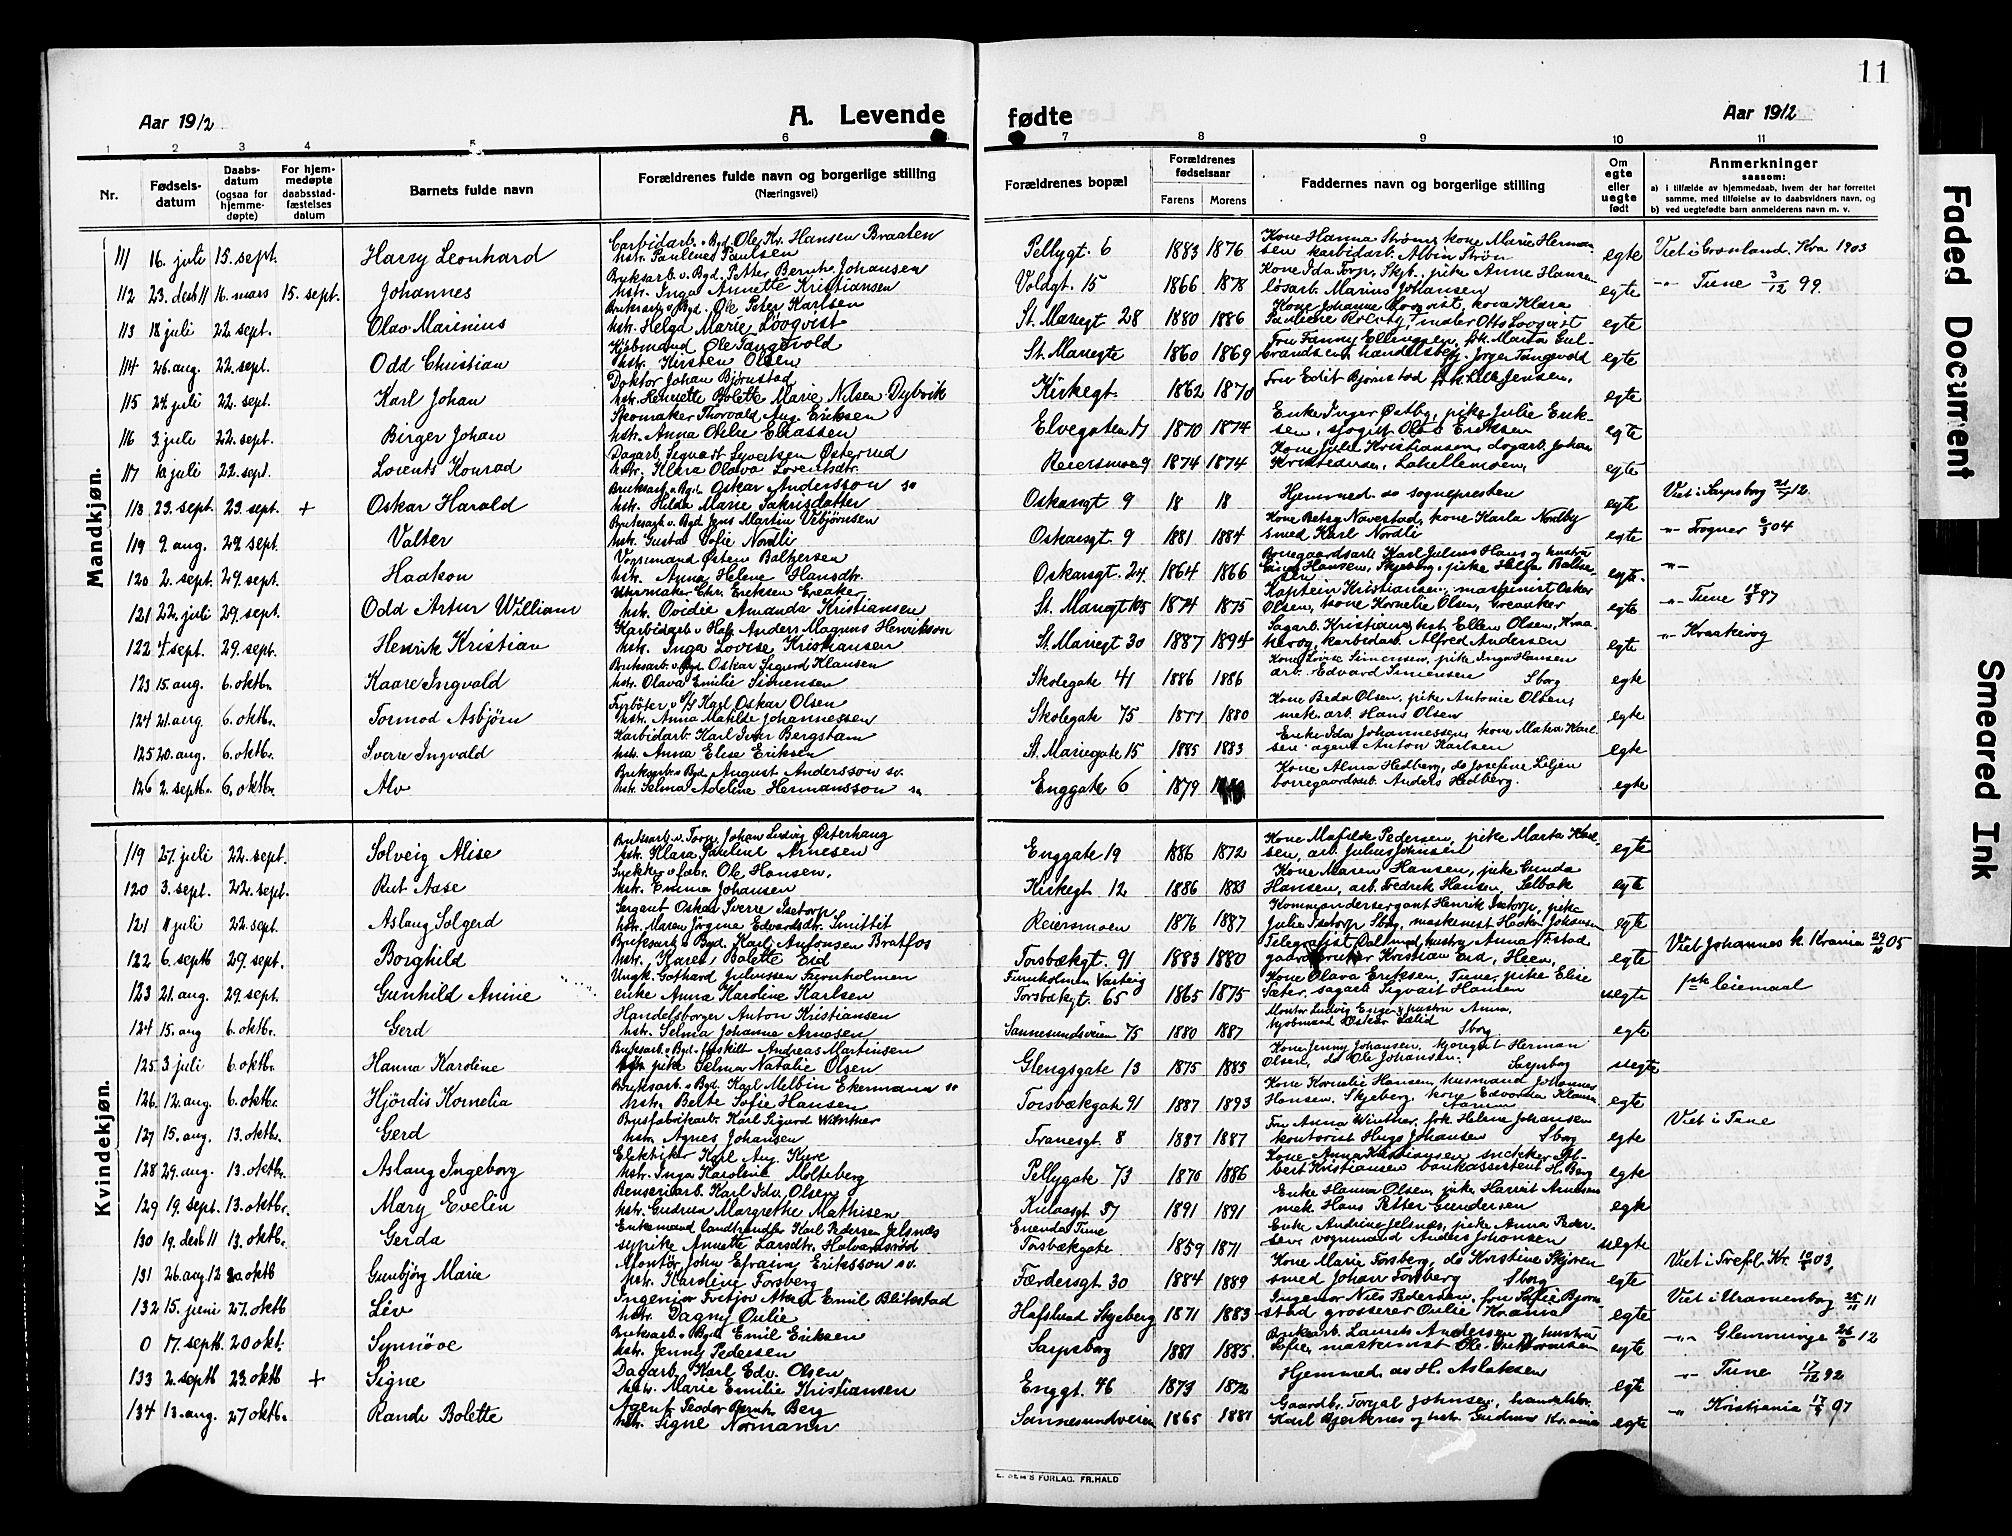 11
Aar 1912
A. Levende
fødte
Aar 1912
1 2 3 4 5 6 7 8 9 10 11
Nr.
Fødsels-
datum
Daabs-
datum
(ogsaa for
hjemme-
døpte)
For hjem-
medøpte
daabsstad-
fæstelses
datum
Barnets fulde navn
Forældrenes fulde navn og borgerlige stilling
(Næringsvei)
Forældrenes bopæl
Forældrenes
fødselsaar
Farens Morens
Faddernes navn og borgerlige stilling
Om
egte
eller
uegte
født
Anmerkninger
saasom:
a) i tilfælde av hjemmedaab, hvem der har forrettet
samme, med tilføielse av to daabsvidners navn, og
b) ved uegtefødte barn anmelderens navn m. v.
Mandkjøn.
111 16. juli 15. sept. Harry Leonhard Carbidarb. v. Bgd. Ole Kr. Hansen Braaten
hstr. Pauline Paulsen Pellygt. 6 1883 1876 Kone Hanna Strøm, kone Marie Herman-
sen karbidarb. Albin Strøm egte Viet i Grønland. Kra 1903
112 23. desb 11 16. mars 15. sept. Johannes Bruksarb. v. Bgd. Petter Bernh. Johansen
hstr. Inga Annette Kristiansen Voldgt. 15 1866 1878 Kone Ida Torp, Skjb., pike Anna Hansen
løsarb. Marius Johansen egte -"- Tune 3/12 99.
113 18 juli 22 sept. Olav Marinius Bruksarb. v. Bgd. Ole Peter Karlsen
hstr. Helga Marie Lövqvist St. Mariegt 28 1880 1886 egte
114 26. aug. 22. sept. Odd Christian Kjøbmand Ole Tangevold
hstr. Kirsten Olsen St. Mariegte 1860 1869 Fru Fanny Ellingsen, frk. Marta Gul-
brandsen, handelsbetj. Jørger Tangevold egte
115 24. juli 22. sept. Karl Johan Doktor Johan Bjørnstad
hstr. Henriette Bolette Marie Nilsen Dybvik Kirkegt. 1862 1870 Fru Edit Bjørnstad egte
116 3. juli 22. sept. Birger Johan Skomaker Thorvald Aug. Eriksen
hstr. Anna Otelie Eliassen Elvegaten 17 1870 1874 Enke Inger Østby, pike Julie Erik-
sen, sjøgut Olaf Eriksen egte
117 10. juli 22. sept. Lorents Konrad Dagarb. Sigvart Syvertsen Østerud
hstr. Klara Olava Lorentsdtr. Reiersmoe 9 1874 1874 egte
118 23. sept. 23. sept. + Oskar Harald Bruksarb. v. Bgd. Oskar Andersson sv
hstr. Hilda Marie Sakrisdatter Oskarsgt 9 18 18 Hjemmed. av sognepresten egte Viet i Sarpsborg 12.
119 9. aug. 29. sept. Valter Bruksarb. v. Bgd. Jens Martin Vebjørnsen
hstr. Gusta Sofie Nordli Oskarsgt. 9 1881 1884 Kone Betsy Navestad, kone Karla Nordby
smed Karl Nordli egte -"- Trogner 04
120 2. sept. 29. sept. Haakon Vognmand Østen Baltzersen
hstr. Anna Helene Hansdtr. Oskarsgt. 24 1864 1866 egte. -"-
121 22. juli 29. sept. Odd Artur William Uhrmaker Chr. Eriksen Greaker
hstr. Ovidie Amanda Kristiansen St. Mariegt 105 1874 1875 Kaptein Kristiansen, maskinist Oskar
Olsen, kone Kornelie Olsen, Greaaker egte -"- Tune 97
122 4. sept. 29. sept. Henrik Kristian Karbidarb. v. Haf. Anders Magnus Henrikson
hstr. Inga Lovise Kristiansen St. Mariegt 30 1887 1894 karbidarb. Alfred Andersen egte -"- Kraakerøg
123 15. aug. 6. oktbr. Kaare Ingvald Bruksarb. v. Bgd. Oskar Sigurd Klausen
hstr. Olava Emilie Simensen Skolegate 41 1886 1886 Kone Lovise Simensen, pike Inga Hansen
arb. Edvard Simensen Sborg egte
124 21. aug 6. oktbr. Tormod Asbjørn Fyrbøter v. S/S Karl Oskar Olsen
hstr. Anna Matilde Johannessen Skolegate 75 1877 1880 Kone Beda Olsen, pike Antonie Olsen,
mek. arb. Hans Olsen egte
125 20. aug. 6. oktbr. Sverre Ingvald Karbidarb. Karl Iver Bergstam
hstr. Anna Elise Eriksen St. Mariegate 15 1885 1883 Enke Ida Johannessen, kone Matea Karl-
sen, agent Anton Karlsen egte
126 2. septbr. 6. oktbr. Alv Bruksarb. v. Bgd. August Andersson sv.
hstr. Selma Adeline Hermansson sv Enggate 6 1879 Kone Alma Hedberg, do Josefine Liljen
borregaardsarb. Anders Hedberg. egte
Kvindekjøn.
119 27. juli 22. sept. Solveig Alise Bruksarb. v. Torp Johan Ludvig Østerhaug
hstr. Klara Pauline Arnesen Enggate 19 1886 1872 Kone Matilde Pedersen, pike Marta Karl-
sen, arb. Julius Johnsen egte
120 3. sept. 22. sept. Rut Aase Snekker v. fabr. Ole Hansen.
hstr. Emma Johansen Kirkegt 12 1886 1883 Kone Maren Hansen, pike Gunda
Hansen, arb. Fredrik Hansen, Selbak egte
121 11 juli 22 sept. Aslaug Solgerd Sergant Oskar Sverre Isetorp
hstr. Maren Jørgine Edvardsdtr. Smittit Reiersmoen 1876 1887 Kommandersergant Henrik Isetorp, pike
Julie Isetorp Sbg., maskinist Haakon Johansen egte
122 6. septb 29. sept. Borghild Bruksarb. v. Bgd. Karl Antonsen Bratfos
hstr. Karen Bolette Eid Torsbækgt. 91 1883 1880 gadrdbruker Kristian Eid, Heen, egte Viet Johannes k. Krania 29/10 05
123 21. aug. 29. sept. Gunhild Annie Ungk. Gothard Juliussen Furnholmen
enke Anna Karoline Karlsen Furuholmen Varteig
Torsbækgt. 65 1865 1875 Kone Olava Eriksen, Tune, pike Elise
Sæter, sagarb. Sigvart Hansen uegte
124 15. aug 6. oktbr. Gerd Handelsborger Anton Kristiansen
hstr. Selma Johanne Arnesen Sannesundsveien 75 1880 1887 Montør Ludvig Enger, hustru Anna,
kjøbmand Oskar Lælid Sborg egte
125 3 juli 6. oktbr. Hanna Karoline Bruksarb. v. Bgd. fraskilt Andreas Martinsen
pike Selma Natalie Olsen Glengsgate 13 1875 1883 Kone Jenny Johansen, Herman
Olsen, do Ole Johansen. Sarpsborg uegte
126. 12. aug. 6. oktbr. Hjördis Kornelia Bruksarb. v. Bgd. Karl Melbin Ekermann sv
hstr. Berte Sofie Hansen Torsbækgate 91 1887 1893 Kone Kornelie Hansen, husmand Johannes
Hansen, Skjeberg, kone Edvarda Klausen egte
127 15. aug. 13. oktbr. Gerd Brusfabrikarb. Karl Sigurd Winther
hstr. Agnes Johansen Tranesgt. 8 1887 1887 Fru Anna Winther, frk. Helene Johansen
kontorist Hugo Johansen Sborg egte Viet i Tune
128 29. aug. 13. oktbr. Aslaug Ingeborg Elektriker Karl Aug. Kure
hstr. Inga Karoline Molteberg Pellygate 73 1870 1886 Kone Anna Kristiansen snekker Al-
bert Kristiansen bankassistent H. Berg egte
129 19. sept. 13. oktbr. Mary Evelin Renseriarb. Karl Edv. Olsen
hstr. Gudrun Margrethe Mathisen Kulaasgt 37 1891 1891 Enke Hanna Olsen, pike Harriet Arnesen
mek. Hans Petter Gundersen egte
130 19. desb 11 13. oktbr. Gerda Enkemand landhandler Karl Pedersen Jelsnæs
sypike Annette Larsdtr. Halvardsrød Enenda Tune
Torsbækgate 1859 1871 Enke Andrine Jelsnæs, pike Anna Peder-
sen, vognmand Anders Johansen uegte
131 26. aug. 12 20. oktb Gunbjørg Marie Montør John Efraim Eriksson sv.
hstr. Karoline Forsberg Færdersgt. 30 1884 1889 Kone Marie Forsberg, do Kristine Skjøren
smed Johan Forsberg Sborg egte Viet i Trefl. Kr. 03
132 15. juni 27. oktb Liv Ingeniør Fritjov Aksel Emil Blikstad
hstr. Dagny Oulie Hafslund Skjeberg 1871 1883 Ingeniør Nils Pedersen, fru Sofie Bjørn-
stad grosserer Oulie Krania egte Viet i Uranienborg 25/11 11
0 17. septb. 20 okt. Synnöve Bruksarb. v. Bgd. Emil Eriksen
hstr. Jenny Pedersen Sarpsborg 1881 1885. Bruksarb. Laurits Andersen og hustru
Sofie, maskinist egte -"- Glemminge 12
133 2. septb 23. oktb + Signe Dagarb. Karl Edv. Olsen
hstr. Marie Emilie Kristiansen Enggt. 46 1873 1872 Hjemmed. av H. Aslaksen egte -"- Tune 17/12 92
134 13. aug. 27 oktbr. Randi Bolette Agent Teodor Bernh. Berg
hstr. Signe Normann Sannesundveien 1865 1881 Karl Bjerknes og hstr. Gudrun Kr.ania egte -"- Kristiania 97
E. SEM'S FORLAG. FR.HALD
Faded Document
Smeared Ink